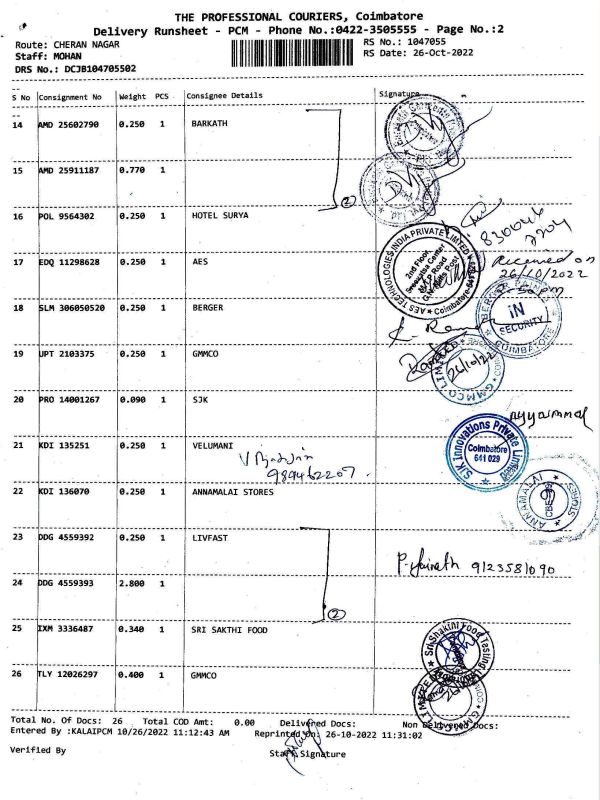 THE PROFESSIONAL COURIERS, Coimbatore
Delivery Runsheet - PCM - Phone No.:0422-3505555 - Page No.:2
Route: CHERAN NAGAR
RS No.: 1047055
Staff: MOHAN
RS Date: 26-Oct-2022
DRS No.: DCJB104705502
S No Consignment No Weight PCS Consignee Details Signature
14 AMD 25602790 0.250 1 BARKATH
15 AMD 25911187 0.770 1
2
16 POL 9564302 0.250 1 HOTEL SURYA
17 EDQ 11298628 0.250 1 AES
AES TECHNOLOGIES INDIA PRIVATE LIMITED
2nd Floor
Coimbatore-641
Received on
26/10/2022
18 SLM 306050520 0.250 1 BERGER
IN
SECURITY
COIMBATORE
19 UPT 2103375 0.250 1 GMMCO
26/10/22
GMMCO LIMITED
20 PRO 14001267 0.090 1 SJK
SJK Innovations Private Limited
Coimbatore
641 029
21 KDI 135251 0.250 1 VELUMANI
989462207
22 KDI 136070 0.250 1 ANNAMALAI STORES
ANNAMALAI STORES
23 DDG 4559392 0.250 1 LIVFAST
9123581090
24 DDG 4559393 2.800 1
2
25 IXM 3336487 0.340 1 SRI SAKTHI FOOD
Sri Shakthi Food Testing
26 TLY 12026297 0.400 1 GMMCO
Total No. Of Docs: 26 Total COD Amt: 0.00 Delivered Docs: Non Delivered Docs:
Entered By :KALAIPCM 10/26/2022 11:12:43 AM Reprinted On: 26-10-2022 11:31:02
Verified By
Staff Signature